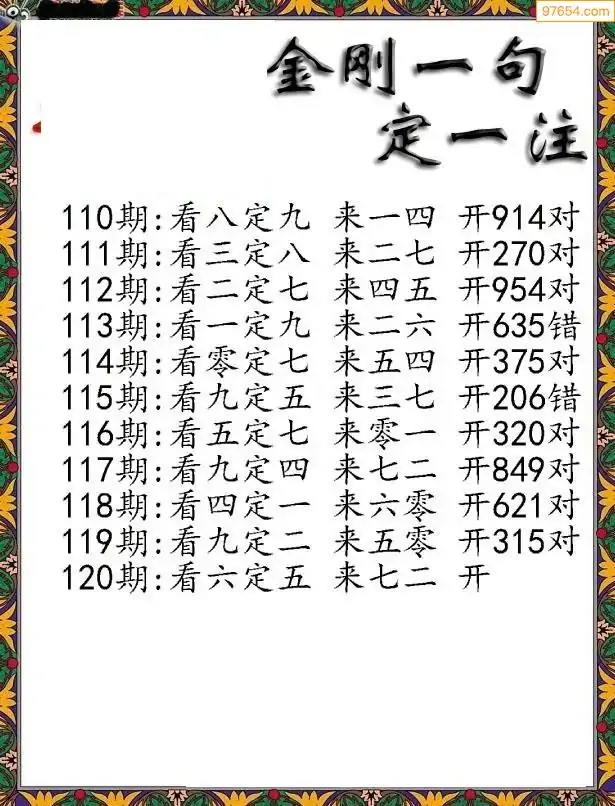 97654.com
金刚一句
定一注
110期:看八定九 来一四 开914对
111期:看三定八 来二七 开270对
112期:看二定七 来四五 开954对
113期:看一定九 来二六 开635错
114期:看零定七 来五四 开375对
115期:看九定五 来三七 开206错
116期:看五定七 来零一 开320对
117期:看九定四 来七二 开849对
118期:看四定一 来六零 开621对
119期:看九定二 来五零 开315对
120期:看六定五 来七二 开